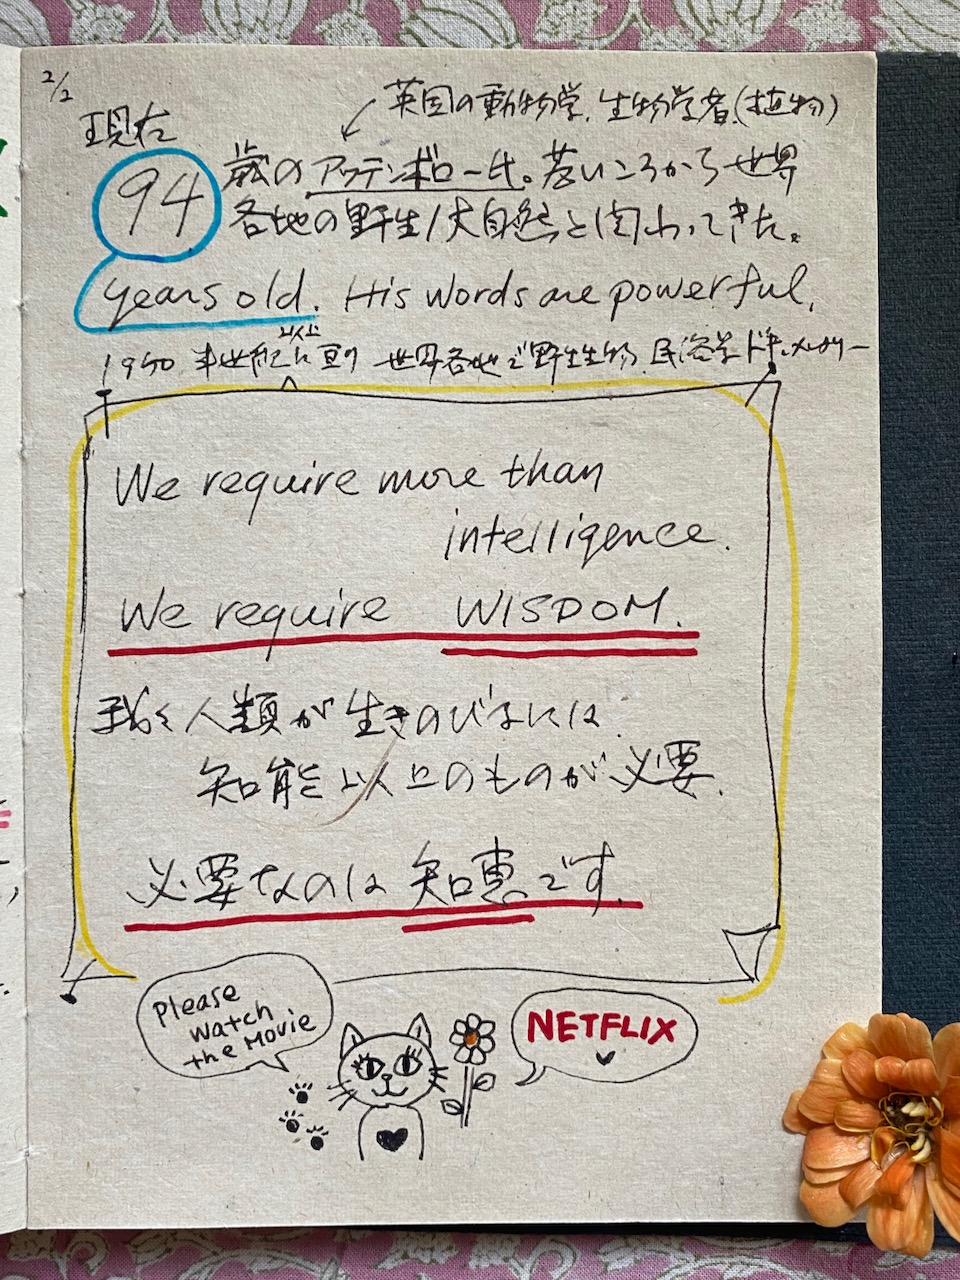 2/2
現在
英国の動物学、生物学者(植物)
94歳のアッテンボロー氏。若いころから世界
各地の野生/大自然と関わってきた。
years old. His words are powerful.
1950 半世紀に亘り 世界各地で野生生物、民俗学ドキュメンタリー
以上
We require more than
intelligence.
We require WISDOM.
我々人類が生きのびるには
知能以上のものが必要.
必要なのは知恵です.
Please
watch
the Movie
NETFLIX